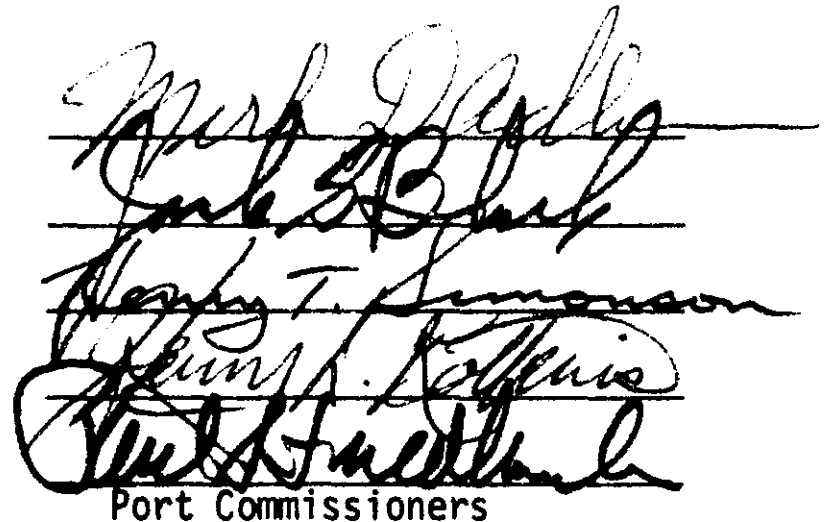 Merle D Adlum
Jack S Block
Henry T. Simonson
Henry L. Kotkins
Paul S Friedlander
Port Commissioners